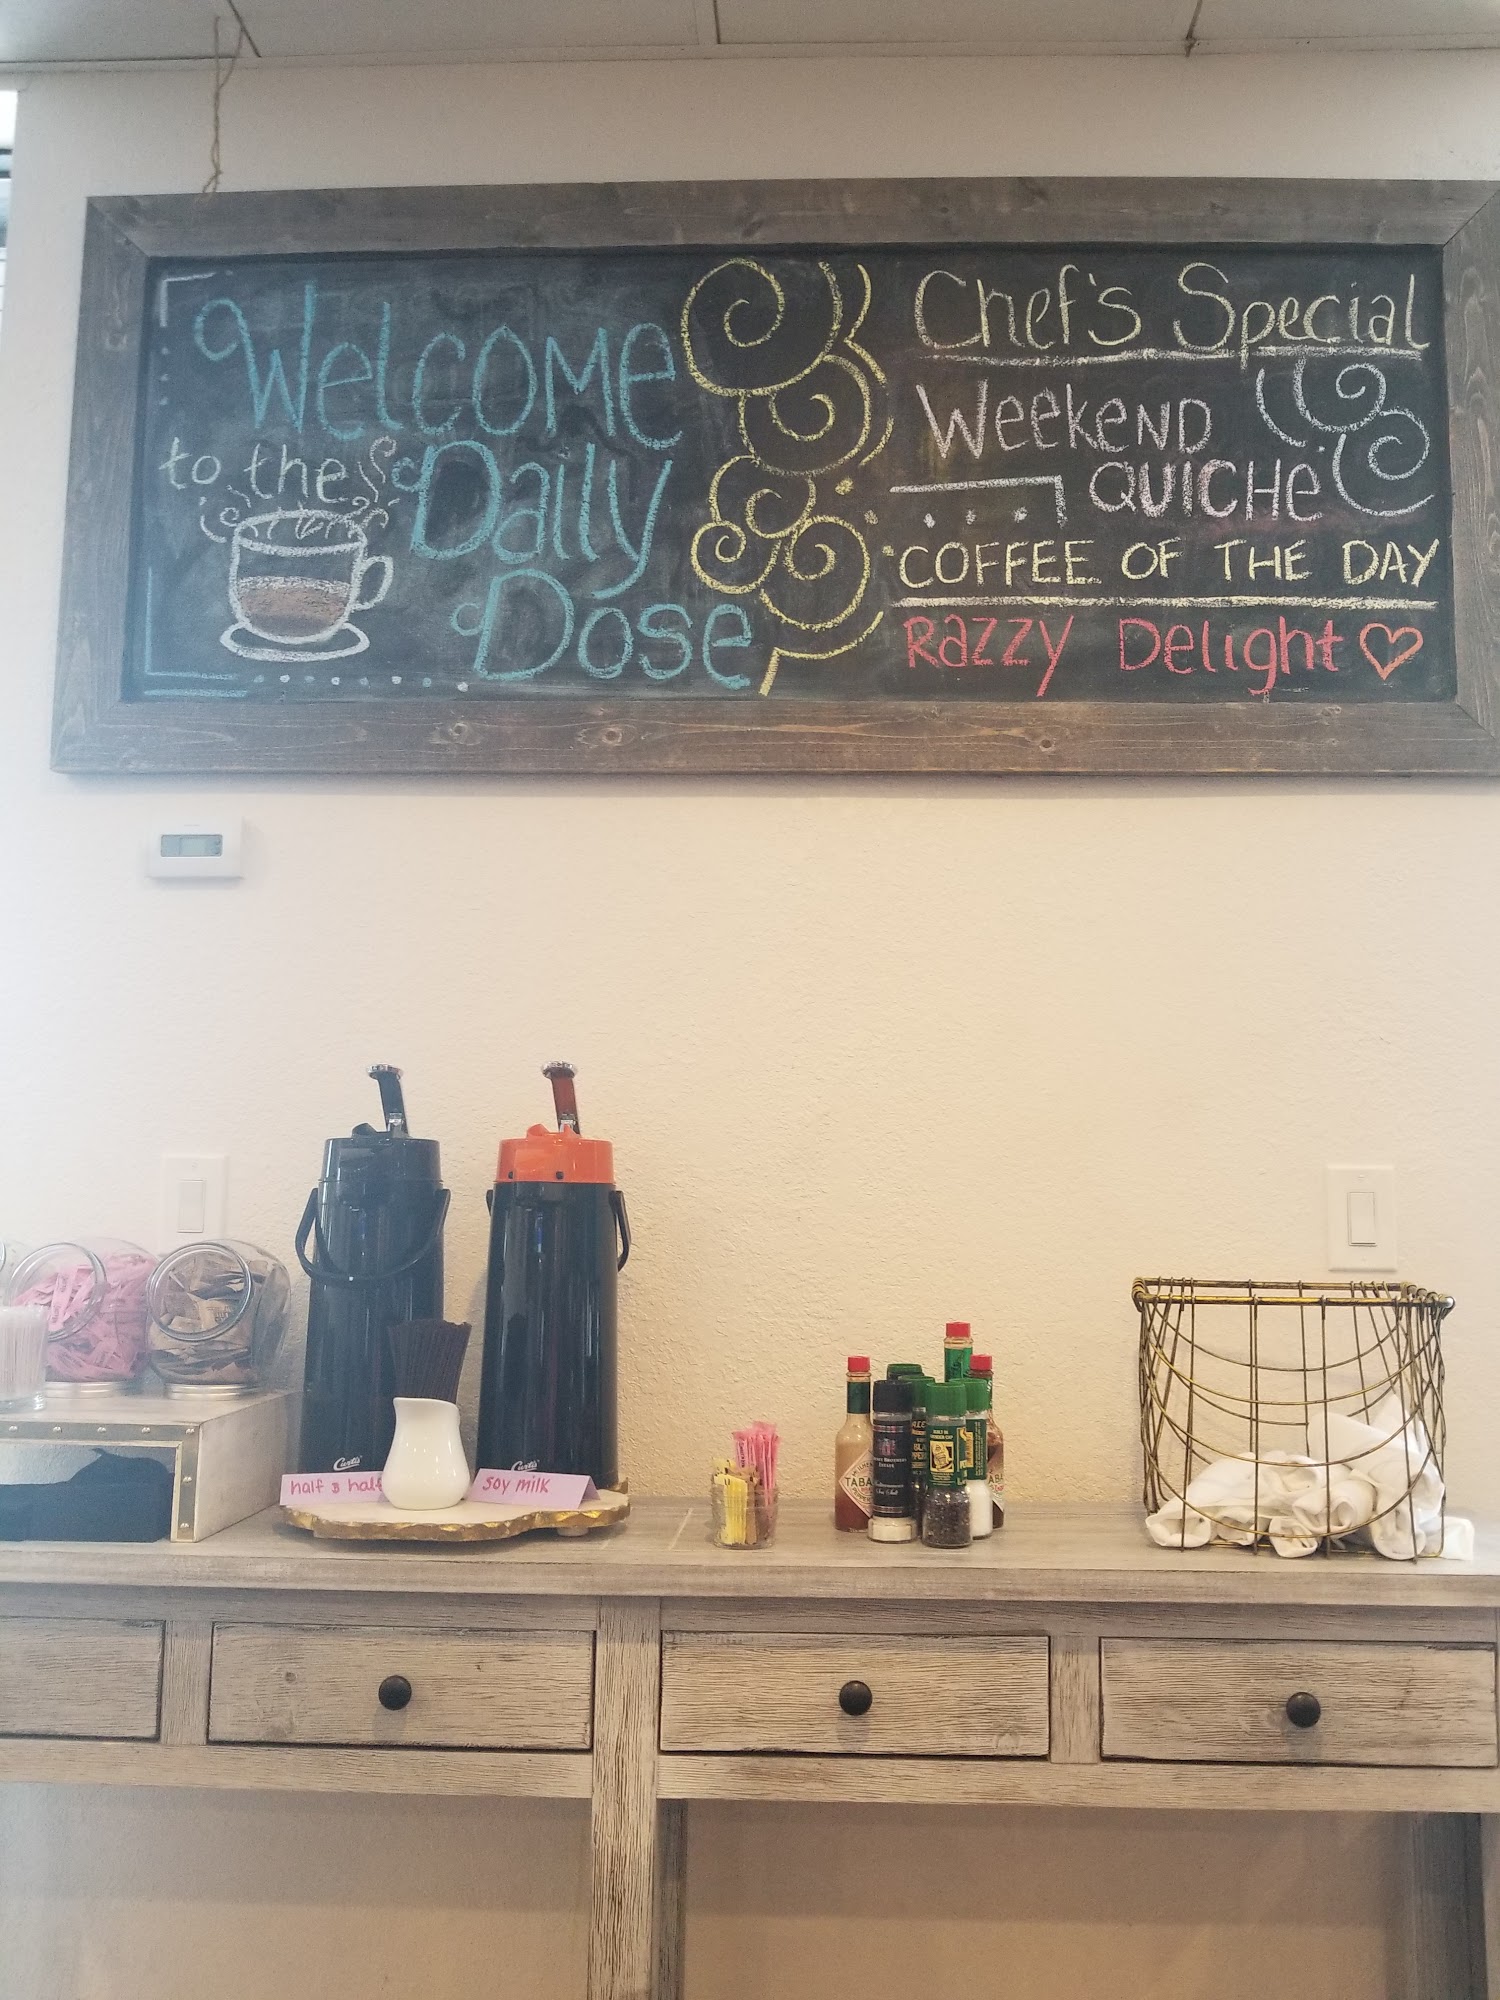 Welcome
to the Daily
Dose
Chef's Special
Weekend
Quiche
COFFEE OF THE DAY
Razzy Delight
Curtis
Curtis
half & half
soy milk
TABA